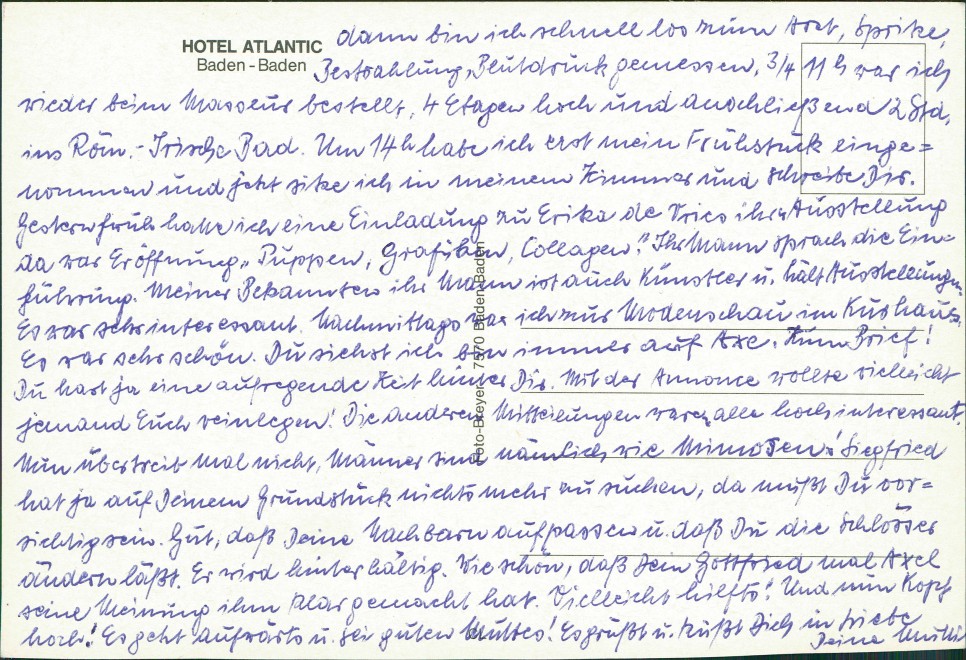 HOTEL ATLANTIC
Baden-Baden
dann bin ich schnell los zum Arzt, Spritze,
Bestrahlung, Blutdruck gemessen, 3/4 11 h war ich
wieder beim Masseur bestellt, 4 Etagen hoch und anschließend 2 Std.
ins Röm.-Irische Bad. Um 14 h habe ich erst mein Frühstück einge=
nommen und jetzt sitze ich in meinem Zimmer und schreibe Dir.
Gestern früh hatte ich eine Einladung zu Erika de Vries ihrer Ausstellung
da war Eröffnung „Puppen, Grafiken, Collagen!" Ihr Mann sprach die Ein-
führung. Meiner Bekannten ihr Mann ist auch Künstler u. hält Ausstellungen.
Es war sehr interessant. Nachmittags war ich zur Modenschau im Kurhaus.
Es war sehr schön. Du siehst ich bin immer auf Axe. Zum Brief!
Du hast ja eine aufregende Zeit hinter Dir. Mit der Annonce wollte vielleicht
jemand Euch reinlegen! Die anderen Mitteilungen waren alle hochinteressant.
Nun übertreib mal nicht, Männer sind nämlich wie Mimosen! Siegfried
hat ja auf Deinem Grundstück nichts mehr zu suchen, da mußt Du vor=
sichtig sein. Gut, daß Deine Nachbarn aufpassen u. daß Du die Schlösser
ändern läßt. Er wird hinterhältig. Wie schön, daß Dein Gottfried mal Axel
seine Meinung ihm klar gemacht hat. Vielleicht hilfts! Und nun Kopf
hoch! Es geht aufwärts u. sei guten Mutes! Es grüßt u. küßt Dich in Liebe
Deine Mutti
Foto-Breyer, 7570 Baden-Baden